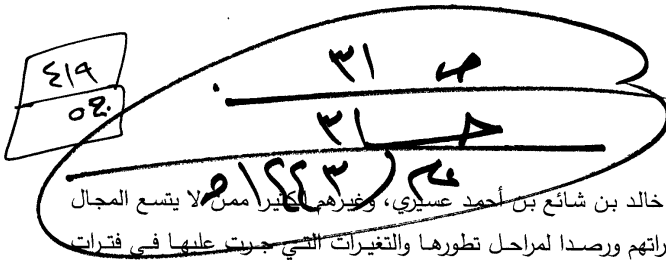 ص ٣١
٤١٩
ج٥
حـــا ٣
عام ١٤٤٣هـ
خالد بن شائع بن أحمد عسيري، وغيرهم كثير ممن لا يتسع المجال
راتهم ورصدا لمراحل تطورها والتغيرات التي جرت عليها في فترات